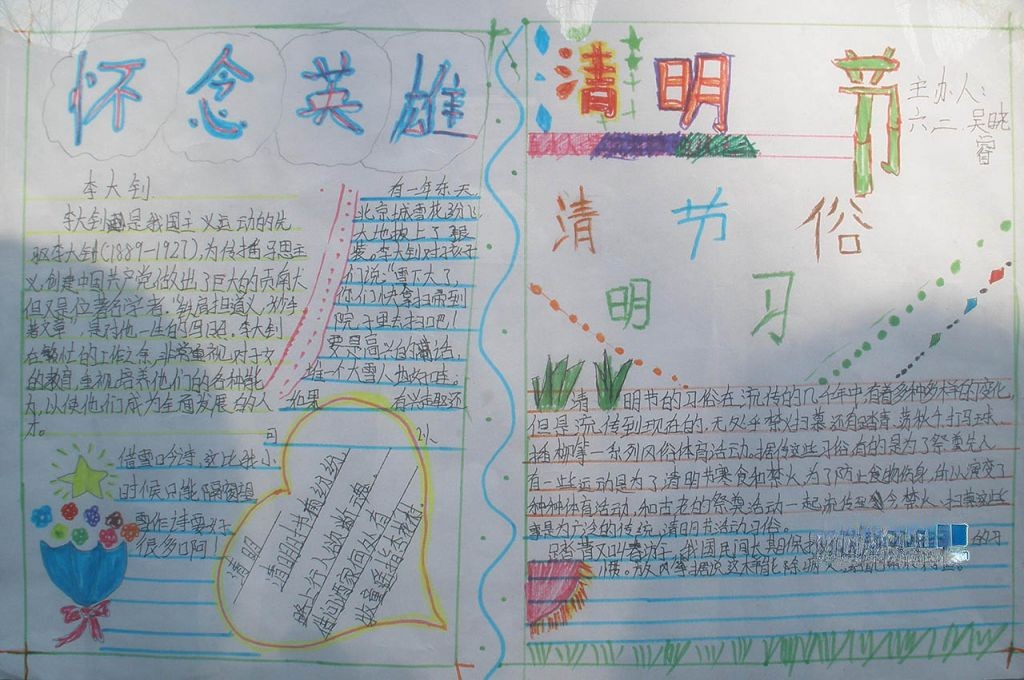 怀念英雄
李大钊
李大钊是我国主义运动的先
驱李大钊(1889-1927),为传播马思主
义,创建中国共产党做出了巨大的贡角大
但又是位著行学者."铁肩担道义,妙手
著文章",是对他一生的写照.李大钊
在繁忙的工作之余,非常重视对子女
的教育,重视培养他们的各种能
力,以使他们成为全面发展的人
才。
有一年冬天,
北京城雪花纷飞
大地披上了银
装。李大钊对孩子
们说:"雪下大了,
你们快拿扫帚到
院子里去扫吧!
要是高兴的话,
堆一个大雪人也好哇。
如果 有兴趣还
可 以
借雪口今诗,这比张小
时候只能隔窗望
雪作诗要好
很多口阿!
清明
清明时节雨纷纷
路上行人欲断魂.
借问酒家何处有
牧童遥指杏花村.
清明节
主办人:
六.二.吴晓
清节俗
明习
清明节的习俗在流传的几千年中有着多种多样的变化,
但是流传到现在的,无处乎禁火扫墓还有踏青、荡秋千、打马球、
插柳等一系列风俗体育活动。据传这些习俗有的是为了祭奠先人,
有一些运动是为了清明节寒食和禁火,为了防止食物伤身,所以演变了
种种体育活动,和古老的祭奠活动一起流传至今禁火、扫墓这些
事是为广泛的传统,清明节活动习俗。
我国民间长期保
的习
惯。